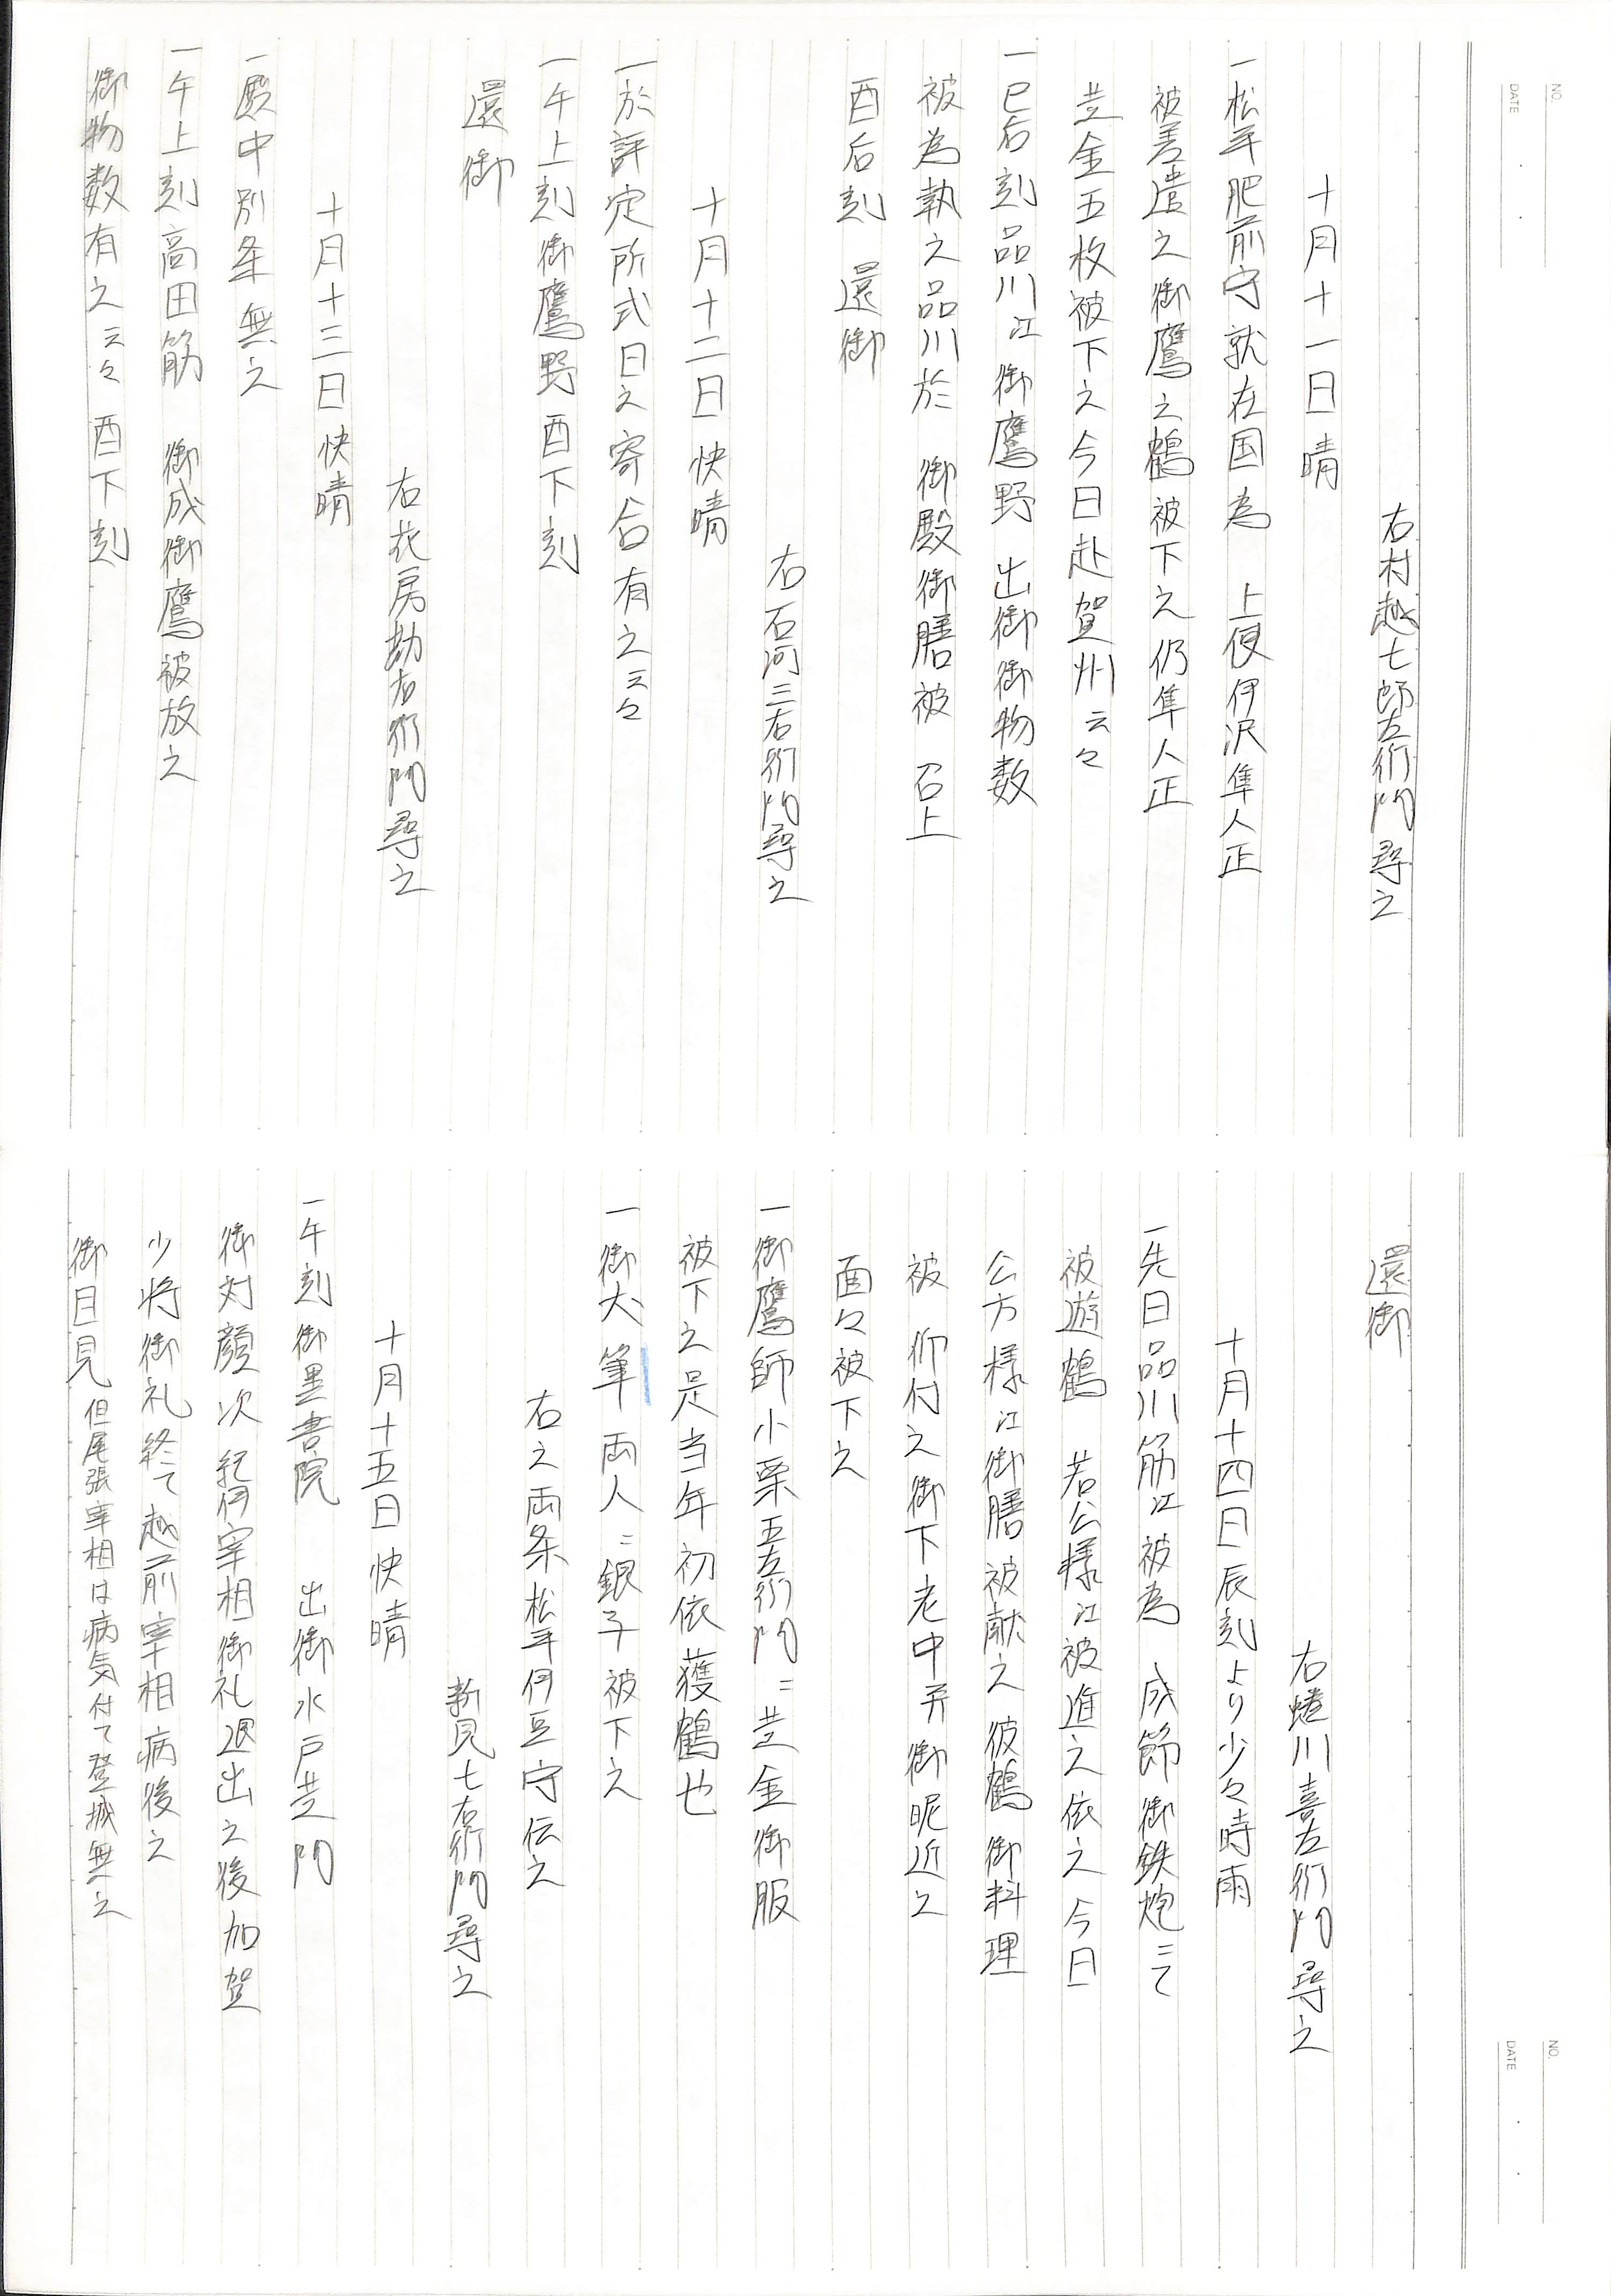 NO.
DATE
右村越七郎左衛門尋之
十月十一日晴
一松平肥前守就在国為　上使伊沢隼人正
被差遣之御鷹之鶴被下之仍隼人正
并金五枚被下之今日赴賀州云々
一巳后刻品川江御鷹野　出御御物数
被為執之品川於　御殿御膳被　召上
酉后刻　還御
右石河三右衛門尋之
十月十二日快晴
一於評定所式日之寄合有之云々
一午上刻御鷹野酉下刻
還御
右花房勘右衛門尋之
十月十三日快晴
一殿中別条無之
一午上刻高田筋　御成御鷹被放之
御物数有之云々酉下刻
NO.
DATE
還御
右蜷川喜左衛門尋之
十月十四日辰刻より少々時雨
一先日品川筋江被為　成節御鉄炮ニて
被遊鶴　若公様江被進之依之今日
公方様江御膳被献之彼鶴御料理
被　仰付之御下老中并御昵近之
面々被下之
一御鷹師小栗五左衛門ニ并金御服
被下之是当年初依獲鶴也
一御犬筆両人ニ銀子被下之
右之両条松平伊豆守伝之
新見七右衛門尋之
十月十五日快晴
一午刻御黒書院　出御水戸并門
御対顔次紀伊宰相御礼退出之後加賀
少将御礼終て越前宰相病後之
御目見但尾張宰相は病気付て登城無之